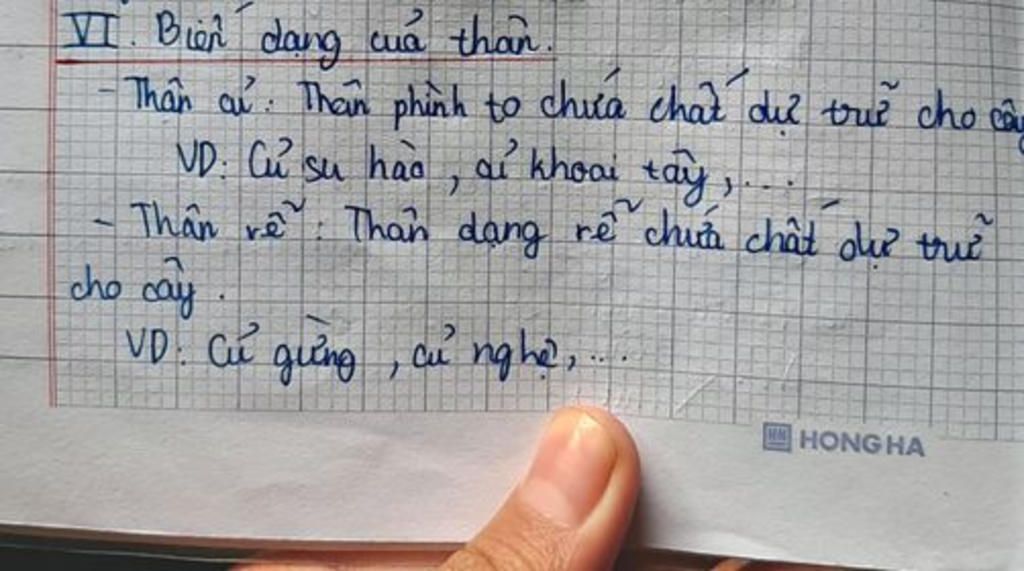 VI. Biến dạng của thân.
- Thân củ: Thân phình to chứa chất dự trữ cho cây
VD: Củ su hào, củ khoai tây,...
- Thân rễ: Thân dạng rễ chứa chất dự trữ
cho cây.
VD: Củ gừng, củ nghệ,...
HONG HA